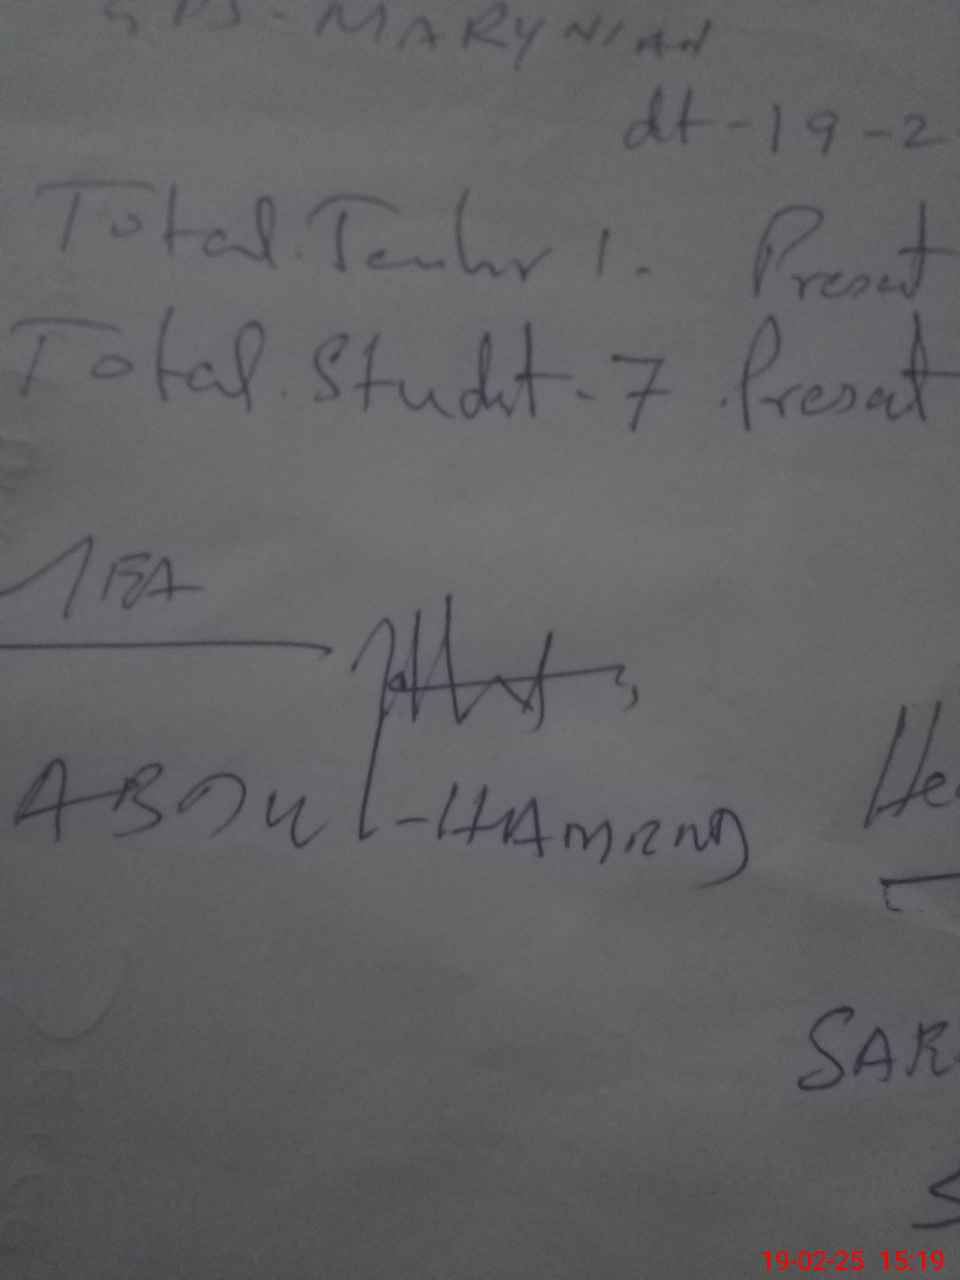 GPS - MARYNIAN
dt - 19 - 2
Total. Teacher 1. Present
Total. Studt - 7. Present
ABDUL - HAMEED
He
SAR
S
19-02-25 15:19